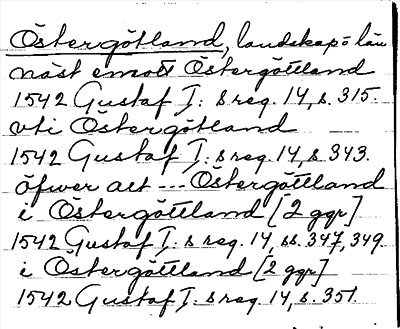 Östergötland, landskap o län
näst emott Östergöttland
1542 Gustaf I: s reg. 14, s. 315.
vti Östergötland
1542 Gustaf I: s reg. 14, s. 343.
öfwer alt --- Östergöttland
i Östergöttland [2 ggr]
1542 Gustaf I: s reg. 14, ss. 347, 349.
i Östergöttland [2 ggr]
1542 Gustaf I: s reg. 14, s. 351.